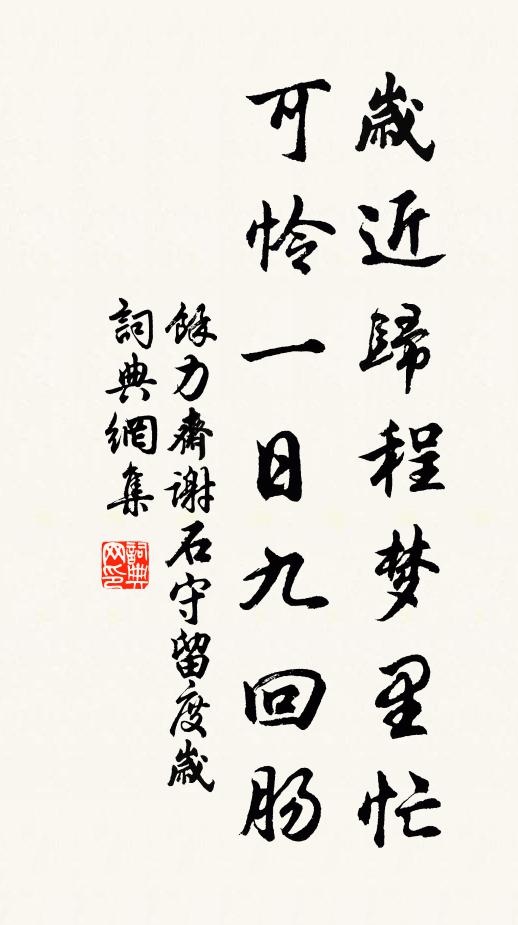 歲近歸程梦里忙
可怜一日九回肠
餘力齋谢石守留度歲
詞典網集
詞典网印